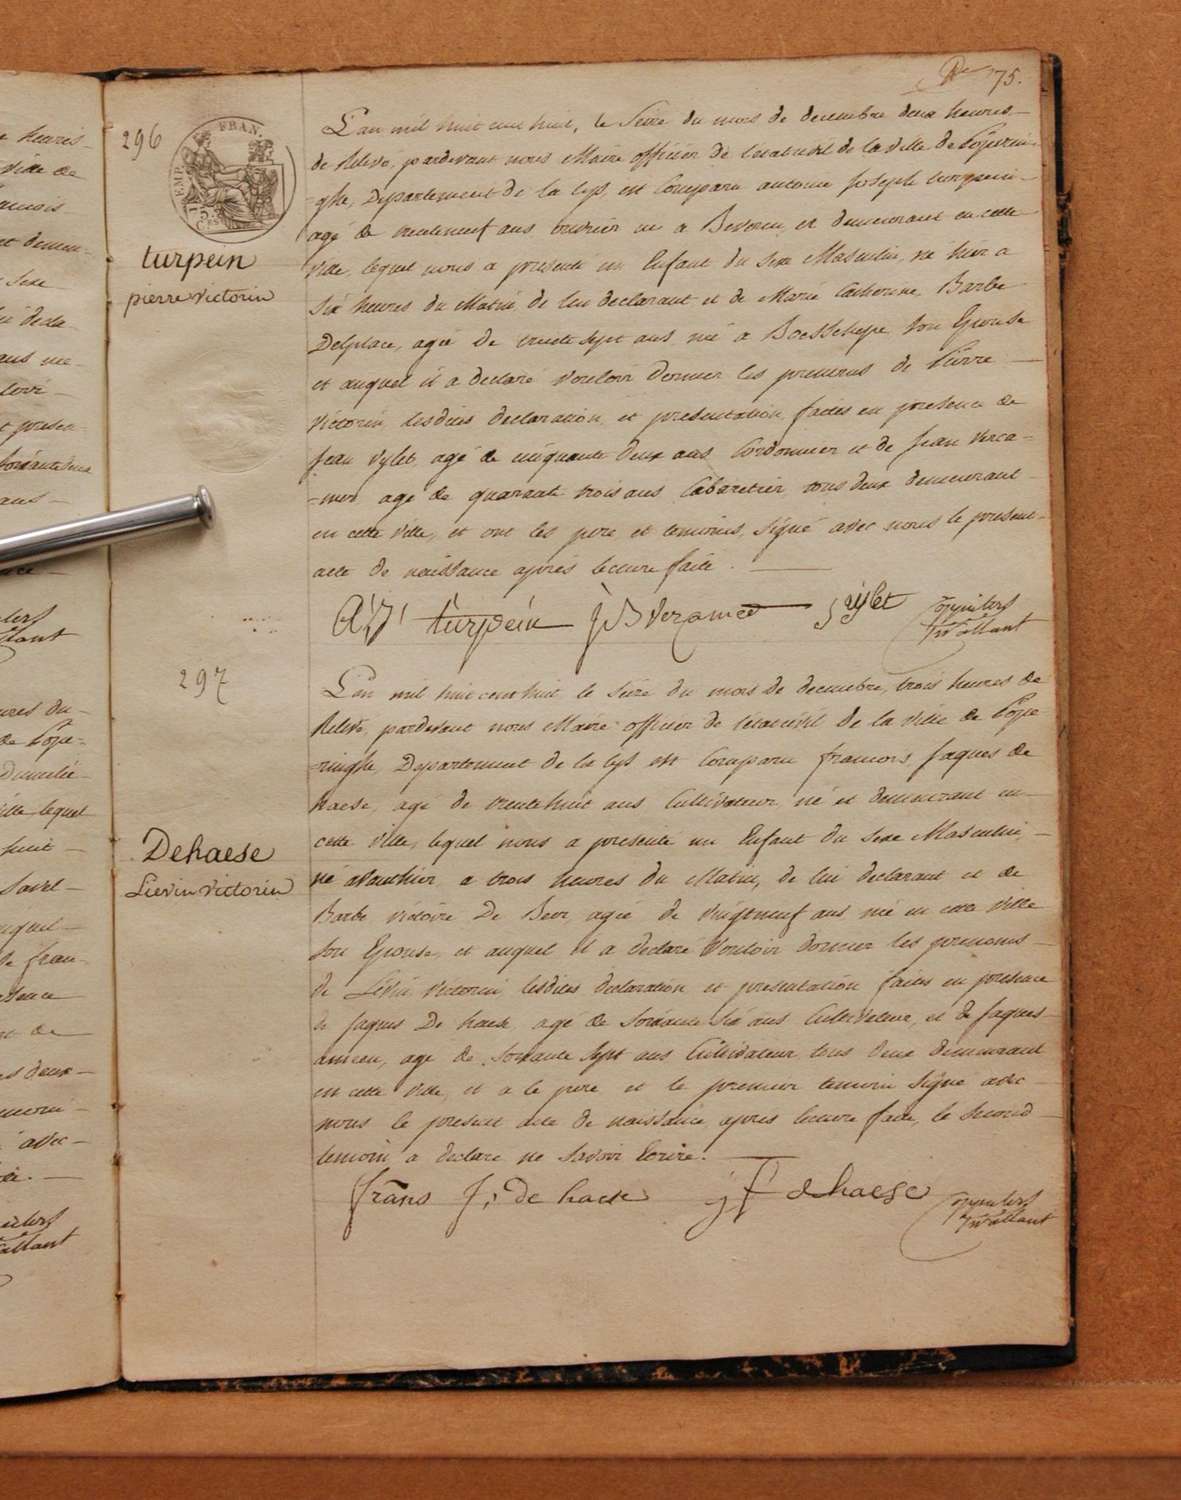 75.
296
EMP. FRAN.
turpein
pierre victorin
L'an mil huit cent huit, le Seize du mois de decembre deux heures
de Relevé, pardevant nous Maire officier de l'etat civil de la Ville de Poperin-
-ghe, Departement de la Lys, est Comparu antoine joseph turpein
agé de trenteneuf ans, ouvrier né a Beveren, et demeurant en cette
Ville, lequel nous a presenté un Enfant du Sexe Masculin, né hier a
Six heures du Matin de lui declarant et de Marie Catherine, Barbe
Delplace, agée de trente sept ans née a Boesschepe, Son Epouse
et auquel il a declaré Vouloir donner les prenoms de Pierre
Victorin, lesdites declaration, et presentation, faites en presence de
Jean Vylet, agé de cinquante deux ans, Cordonnier et de Jean Verca-
-mer, agé de quarante trois ans, Cabaretier, tous deux demeurant
en cette ville, et ont les pere, et temoins, Signé avec nous le present
acte de naissance après lecture faite.
turpein
297
Dehaese
Lievin victorin
L'an mil huit cent huit le Seize du mois de decembre, trois heures de
Relevé, pardevant nous Maire officier de l'etat civil de la Ville de Pope
-ringhe, Departement de la Lys est Comparu francois jaques de
haese, agé de trentehuit ans Cultivateur, né et demeurant en
cette Ville, lequel nous a presenté un Enfant du Sexe Masculin,
né avanthier a trois heures du Matin, de lui declarant et de
Barbe Victoire De Beer, agée de Vingtneuf ans née en cette Ville
Son Epouse, et auquel il a declaré Vouloir donner les prenoms
de Lievin Victorin lesdites declaration et presentation faites en presence
de jaques De haese, agé de Soixante Six ans Cultivateur, et de jaques
ameeu, agé de Soixante Sept ans Cultivateur tous deux demeurant
en cette Ville, et a le pere et le premier temoin Signé avec
nous le present acte de naissance, apres lecture faite, le Second
temoin a declaré ne Savoir Ecrire.
frans J, de haese j f dhaese